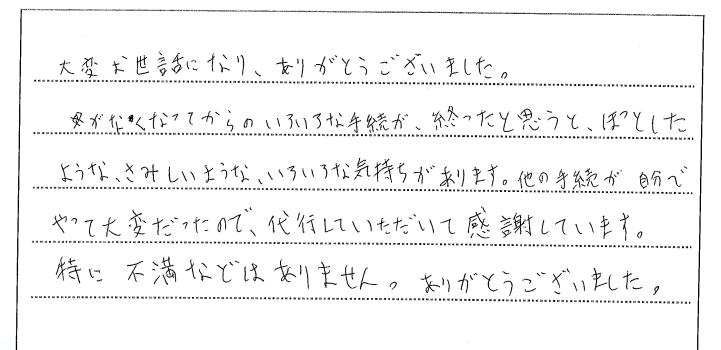 大変お世話になり、ありがとうございました。
がなくなってからのいろいろな手続が、終ったと思うと、ほっとした
ような、さみしいような、いろいろな気持ちがあります。他の手続が自分で
やって大変だったので、代行していただいて感謝しています。
特に不満などはありません。ありがとうございました。